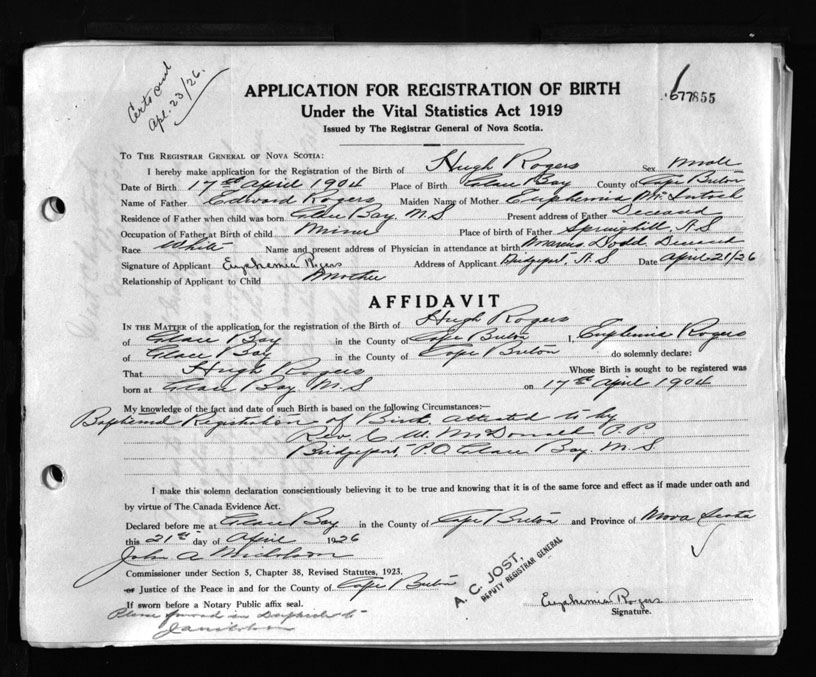 Certs and
Apl. 23/26.
677855
APPLICATION FOR REGISTRATION OF BIRTH
Under the Vital Statistics Act 1919
Issued by The Registrar General of Nova Scotia.
TO THE REGISTRAR GENERAL OF NOVA SCOTIA:
I hereby make application for the Registration of the Birth of Hugh Rogers Sex Male
Date of Birth 17th April 1904 Place of Birth Glace Bay County of Cape Breton
Name of Father Edward Rogers Maiden Name of Mother Euphemia McIntosh
Residence of Father when child was born Glace Bay. N.S Present address of Father Deceased
Occupation of Father at Birth of child Miner Place of birth of Father Springhill, N.S
Race White Name and present address of Physician in attendance at birth Marcus Dodd, Deceased
Signature of Applicant Euphemia Rogers Address of Applicant Bridgeport, N.S Date April 21/26
Relationship of Applicant to Child Mother
AFFIDAVIT
IN THE MATTER of the application for the registration of the Birth of Hugh Rogers
of Glace Bay in the County of Cape Breton I, Euphemia Rogers
of Glace Bay in the County of Cape Breton do solemnly declare:
That Hugh Rogers Whose Birth is sought to be registered was
born at Glace Bay. N.S on 17th April 1904
My knowledge of the fact and date of such Birth is based on the following Circumstances:—
Baptismal Registration of Birth, attested to by
Rev. C. W. McDonald P.P
Bridgeport, P.O. Glace Bay. N.S
I make this solemn declaration conscientiously believing it to be true and knowing that it is of the same force and effect as if made under oath and
by virtue of The Canada Evidence Act.
Declared before me at Glace Bay in the County of Cape Breton and Province of Nova Scotia
this 21st day of April 1926
John A Nicholson
Commissioner under Section 5, Chapter 38, Revised Statutes, 1923.
or Justice of the Peace in and for the County of Cape Breton
A. C. JOST,
DEPUTY REGISTRAR GENERAL
If sworn before a Notary Public affix seal.
Euphemia Rogers
Signature.
Please forward in